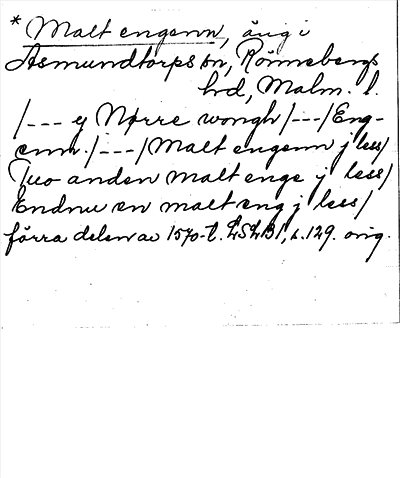 * Maltengenn, äng i
Asmundtorps sn, Rönnebergs
hd, Malm. l.
/--- y Nørre wongh/---/Eng-
enn./---/Maltengenn j less/
Tuo anden maltenge j less/
Endnu en malteng j less/
förra delen av 1570-t. LSLB1, s. 129. orig.